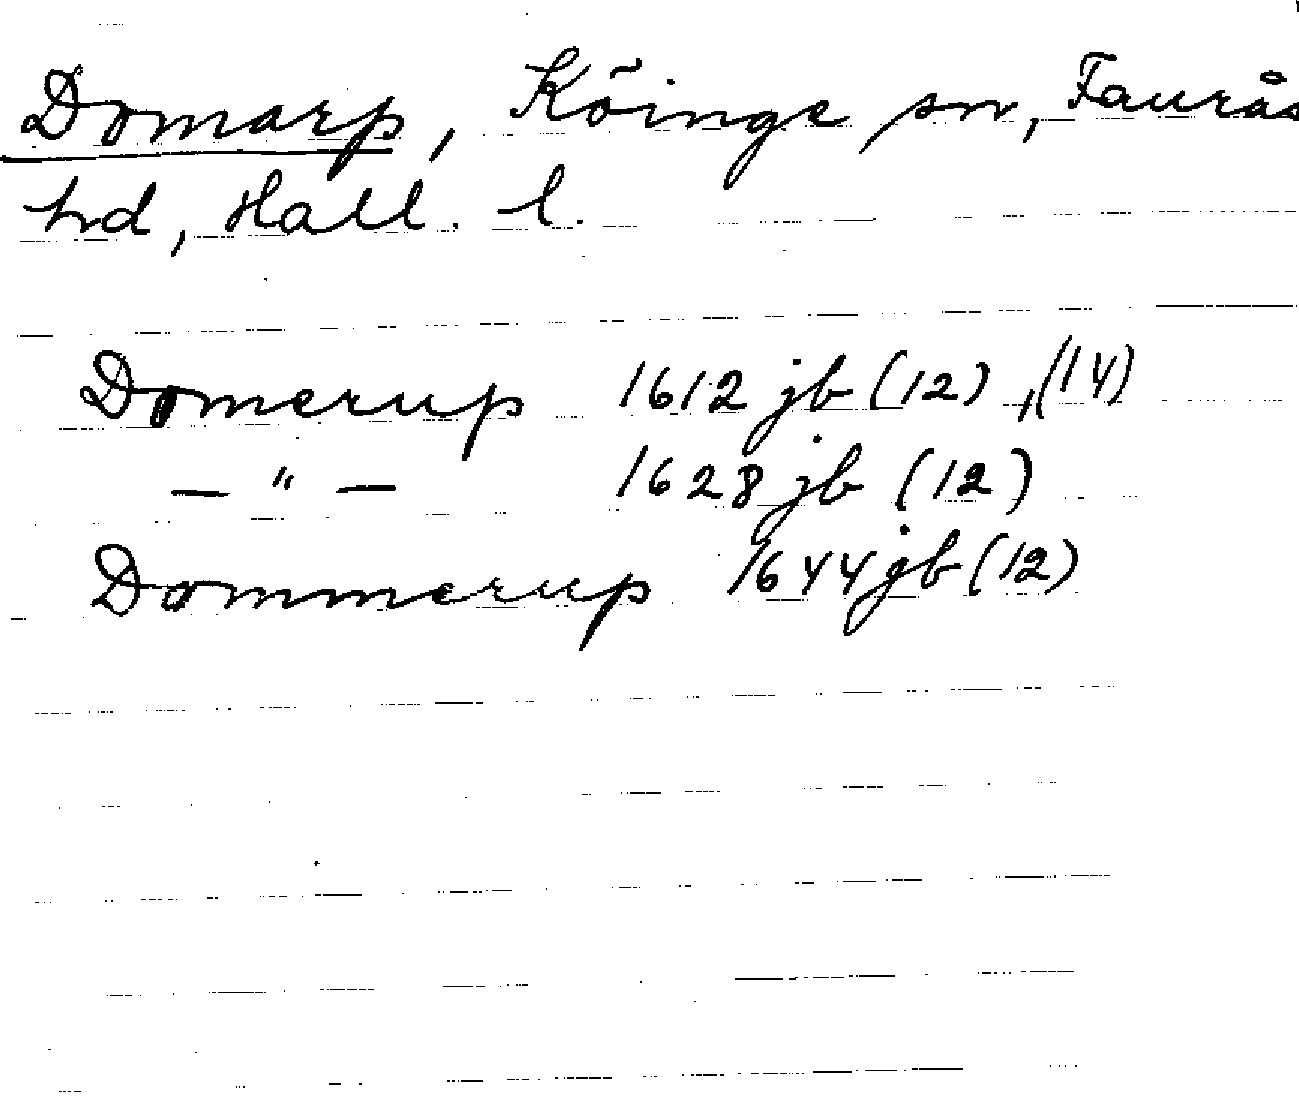 Domarp, Köinge sn, Faurås
hd, Hall. l.
Domerup 1612 jb (12), (14)
— " — 1628 jb (12)
Dommerup 1644 jb (12)